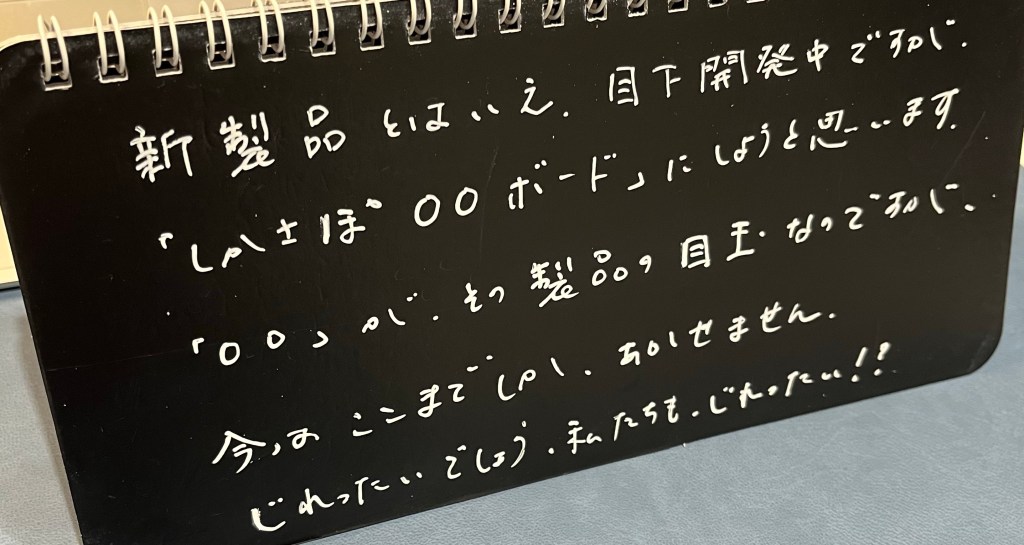 新製品とはいえ、目下開発中ですが、
「しかさぽ〇〇ボード」にしようと思います。
「〇〇」が、その製品の目玉なのですが、
今はここまでしか、あかせません。
じれったいでしょう、私たちも、じれったい!?